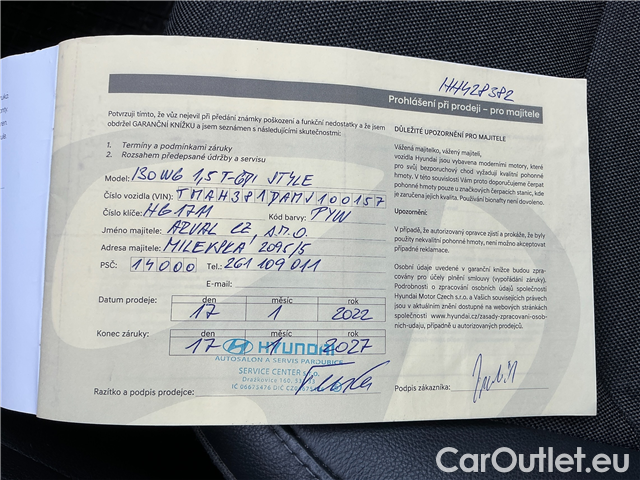 HH428382
Prohlášení při prodeji – pro majitele
Potvrzuji tímto, že vůz nejevil při předání známky poškození a funkční nedostatky a že jsem
obdržel GARANČNÍ KNÍŽKU a jsem seznámen s následujícími skutečnostmi:
1. Termíny a podmínkami záruky
2. Rozsahem předepsané údržby a servisu
Model: I30 WG 1,5 T-GDI STYLE
Číslo vozidla (VIN): TMAH381DAMJ100157
Číslo klíče: HG17M Kód barvy: PYW
Jméno majitele: ARVAL CZ, s.r.o.
Adresa majitele: MILEVSKÁ 2095/5
PSČ: 14000 Tel.: 261 109 011
E-mail:
den měsíc rok
Datum prodeje: 17 1 2022
den měsíc rok
Konec záruky: 17 1 2027
HYUNDAI
AUTOSALON A SERVIS PARDUBICE
SERVICE CENTER s.r.o.
Dražkovice 160,
IC 06673476 DIC
Razítko a podpis prodejce:
DŮLEŽITÉ UPOZORNĚNÍ PRO MAJITELE
Vážená majitelko, vážený majiteli,
vozidla Hyundai jsou vybavena moderními motory, které
pro svůj bezporuchový chod vyžadují kvalitní pohonné
hmoty. V této souvislosti Vám proto doporučujeme čerpat
pohonné hmoty pouze u značkových čerpacích stanic, kde
je zaručena jejich kvalita. Používání bionafty není dovoleno.
Upozornění:
V případě, že autorizovaný opravce zjistí a prokáže, že byly
použity nekvalitní pohonné hmoty, není možno akceptovat
případnou reklamaci.
Osobní údaje uvedené v garanční knížce budou zpra-
covány pro účely plnění smlouvy (vypořádání záruky).
Podrobnosti o zpracování osobních údajů společností
Hyundai Motor Czech s.r.o. a Vašich souvisejících právech
jsou v aktuálním znění dostupné na webových stránkách
společnosti www.hyundai.cz/zasady-zpracovani-osob-
nich-udaju, případně u autorizovaných prodejců.
Podpis zákazníka:
CarOutlet.eu